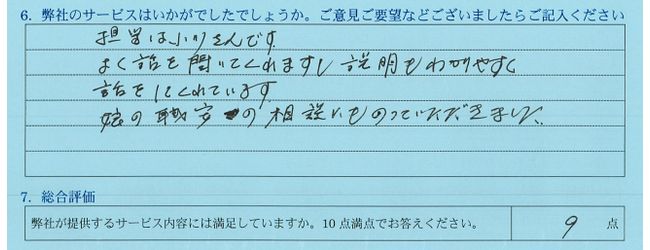 6. 弊社のサービスはいかがでしたでしょうか。ご意見ご要望などございましたらご記入ください
担当は小川さんです。
よく話を聞いてくれますし説明もわかりやすく
話をしてくれています
娘の職安の相談にものっていただきました。
7. 総合評価
弊社が提供するサービス内容には満足していますか。10点満点でお答えください。 9 点